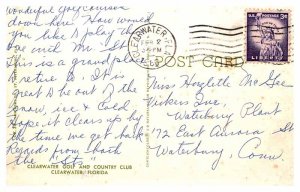 Wonderful Greyness am
down here How would
you like to play this
one with Mr.
This is a grand place
to retire to. It is
great to be out of the
snow, ice & cold
Hope it clears up by
the time we get back
Regards from both
the
CLEARWATER GOLF AND COUNTRY CLUB
CLEARWATER, FLORIDA
CLEARWATER, FLA.
FEB 9
PM
POST CARD
U.S. POSTAGE
3¢
LIBERTY
Miss Hazlette McGee
Vickers Inc.
Waterbury Plant
72 East Aurora St
Waterbury, Conn.